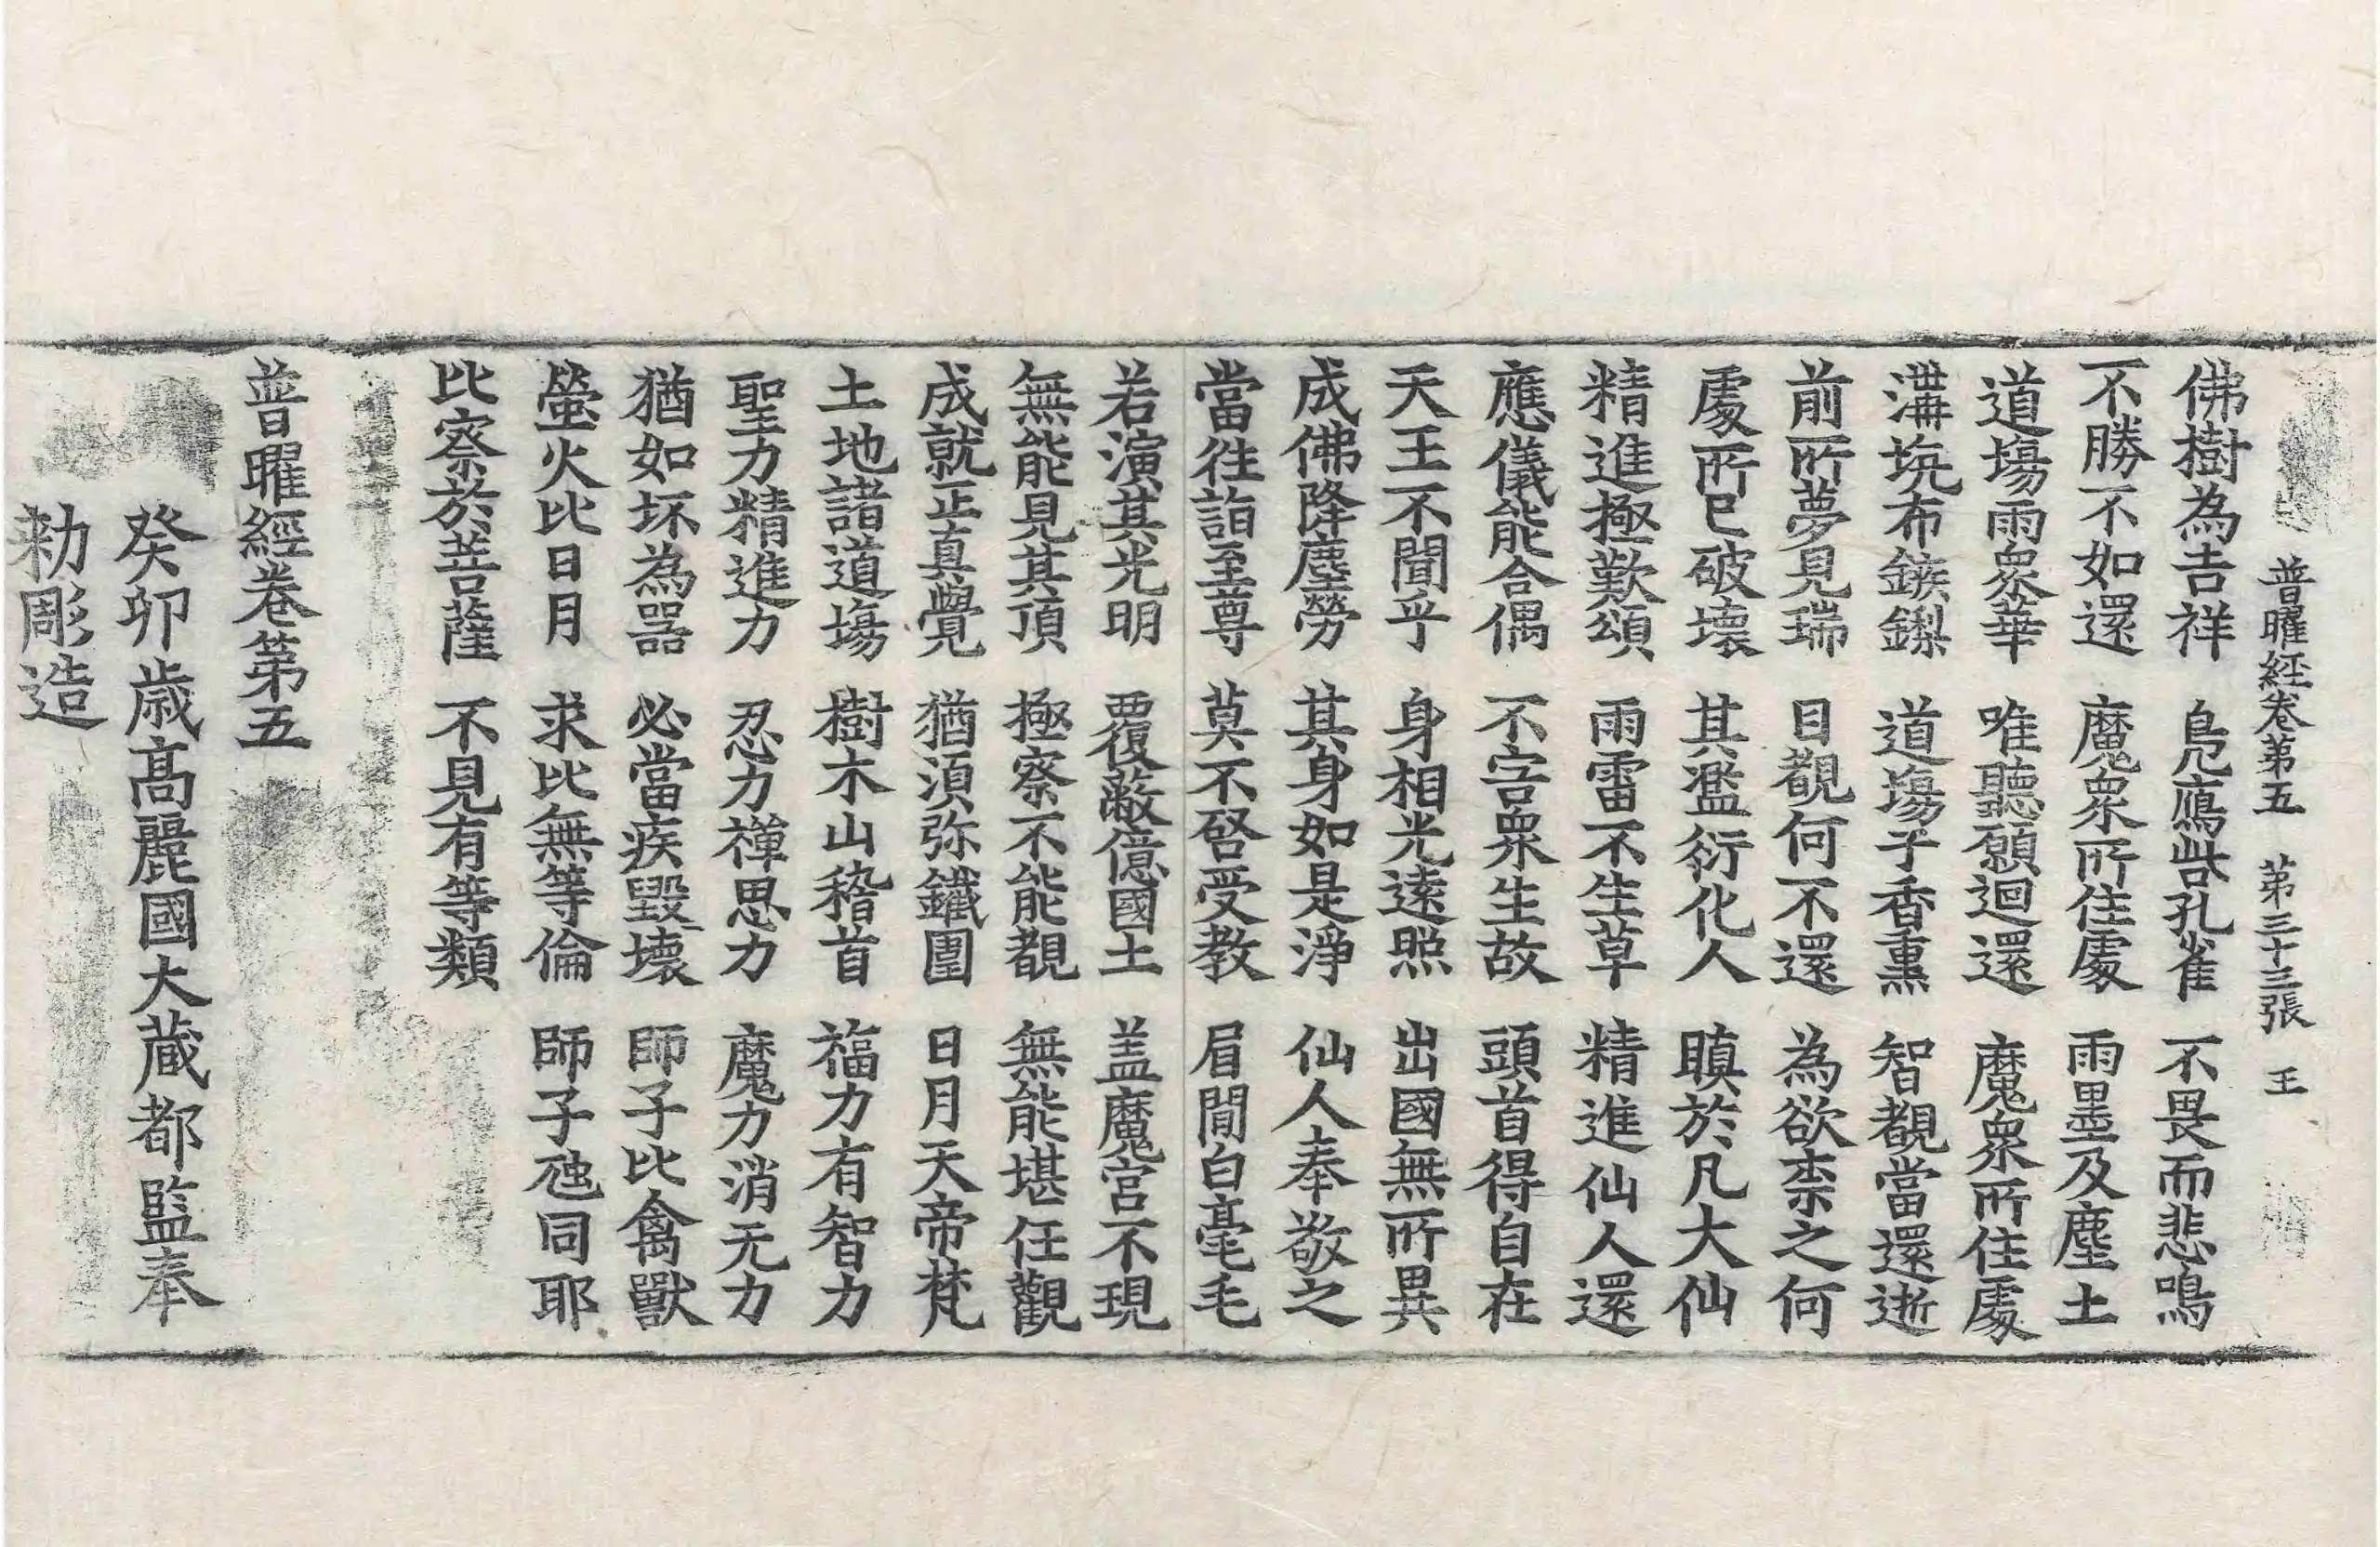 普曜經卷第五 第三十三張 王
佛樹為吉祥 鳧鴈㘅孔雀 不畏而悲鳴
不勝不如還 魔衆所住處 雨墨及塵土
道場雨衆華 唯聽願迴還 魔衆所住處
溝坑布鏃鑗 道場子香熏 智覩當還逝
前所夢見瑞 日覩何不還 為欲柰之何
處所已破壞 其濫衍化人 瞋於凡大仙
精進極歎頌 雨雷不生草 精進仙人還
應儀能合偶 不害衆生故 頭首得自在
天王不聞乎 身相光遠照 出國無所異
成佛降塵勞 其身如是淨 仙人奉敬之
當往詣至尊 莫不啓受教 眉間白毫毛
若演其光明 覆蔽億國土 盖魔宮不現
無能見其頂 極察不能覩 無能堪任觀
成就正真覺 猶須弥鐵圍 日月天帝梵
土地諸道場 樹木山稽首 福力有智力
聖力精進力 忍力禪思力 魔力消无力
猶如坏為器 必當疾毀壞 師子比禽獸
螢火比日月 求比無等倫 師子虺同耶
比察於菩薩 不見有等類
普曜經卷第五
癸卯歲高麗國大藏都監奉
勑彫造